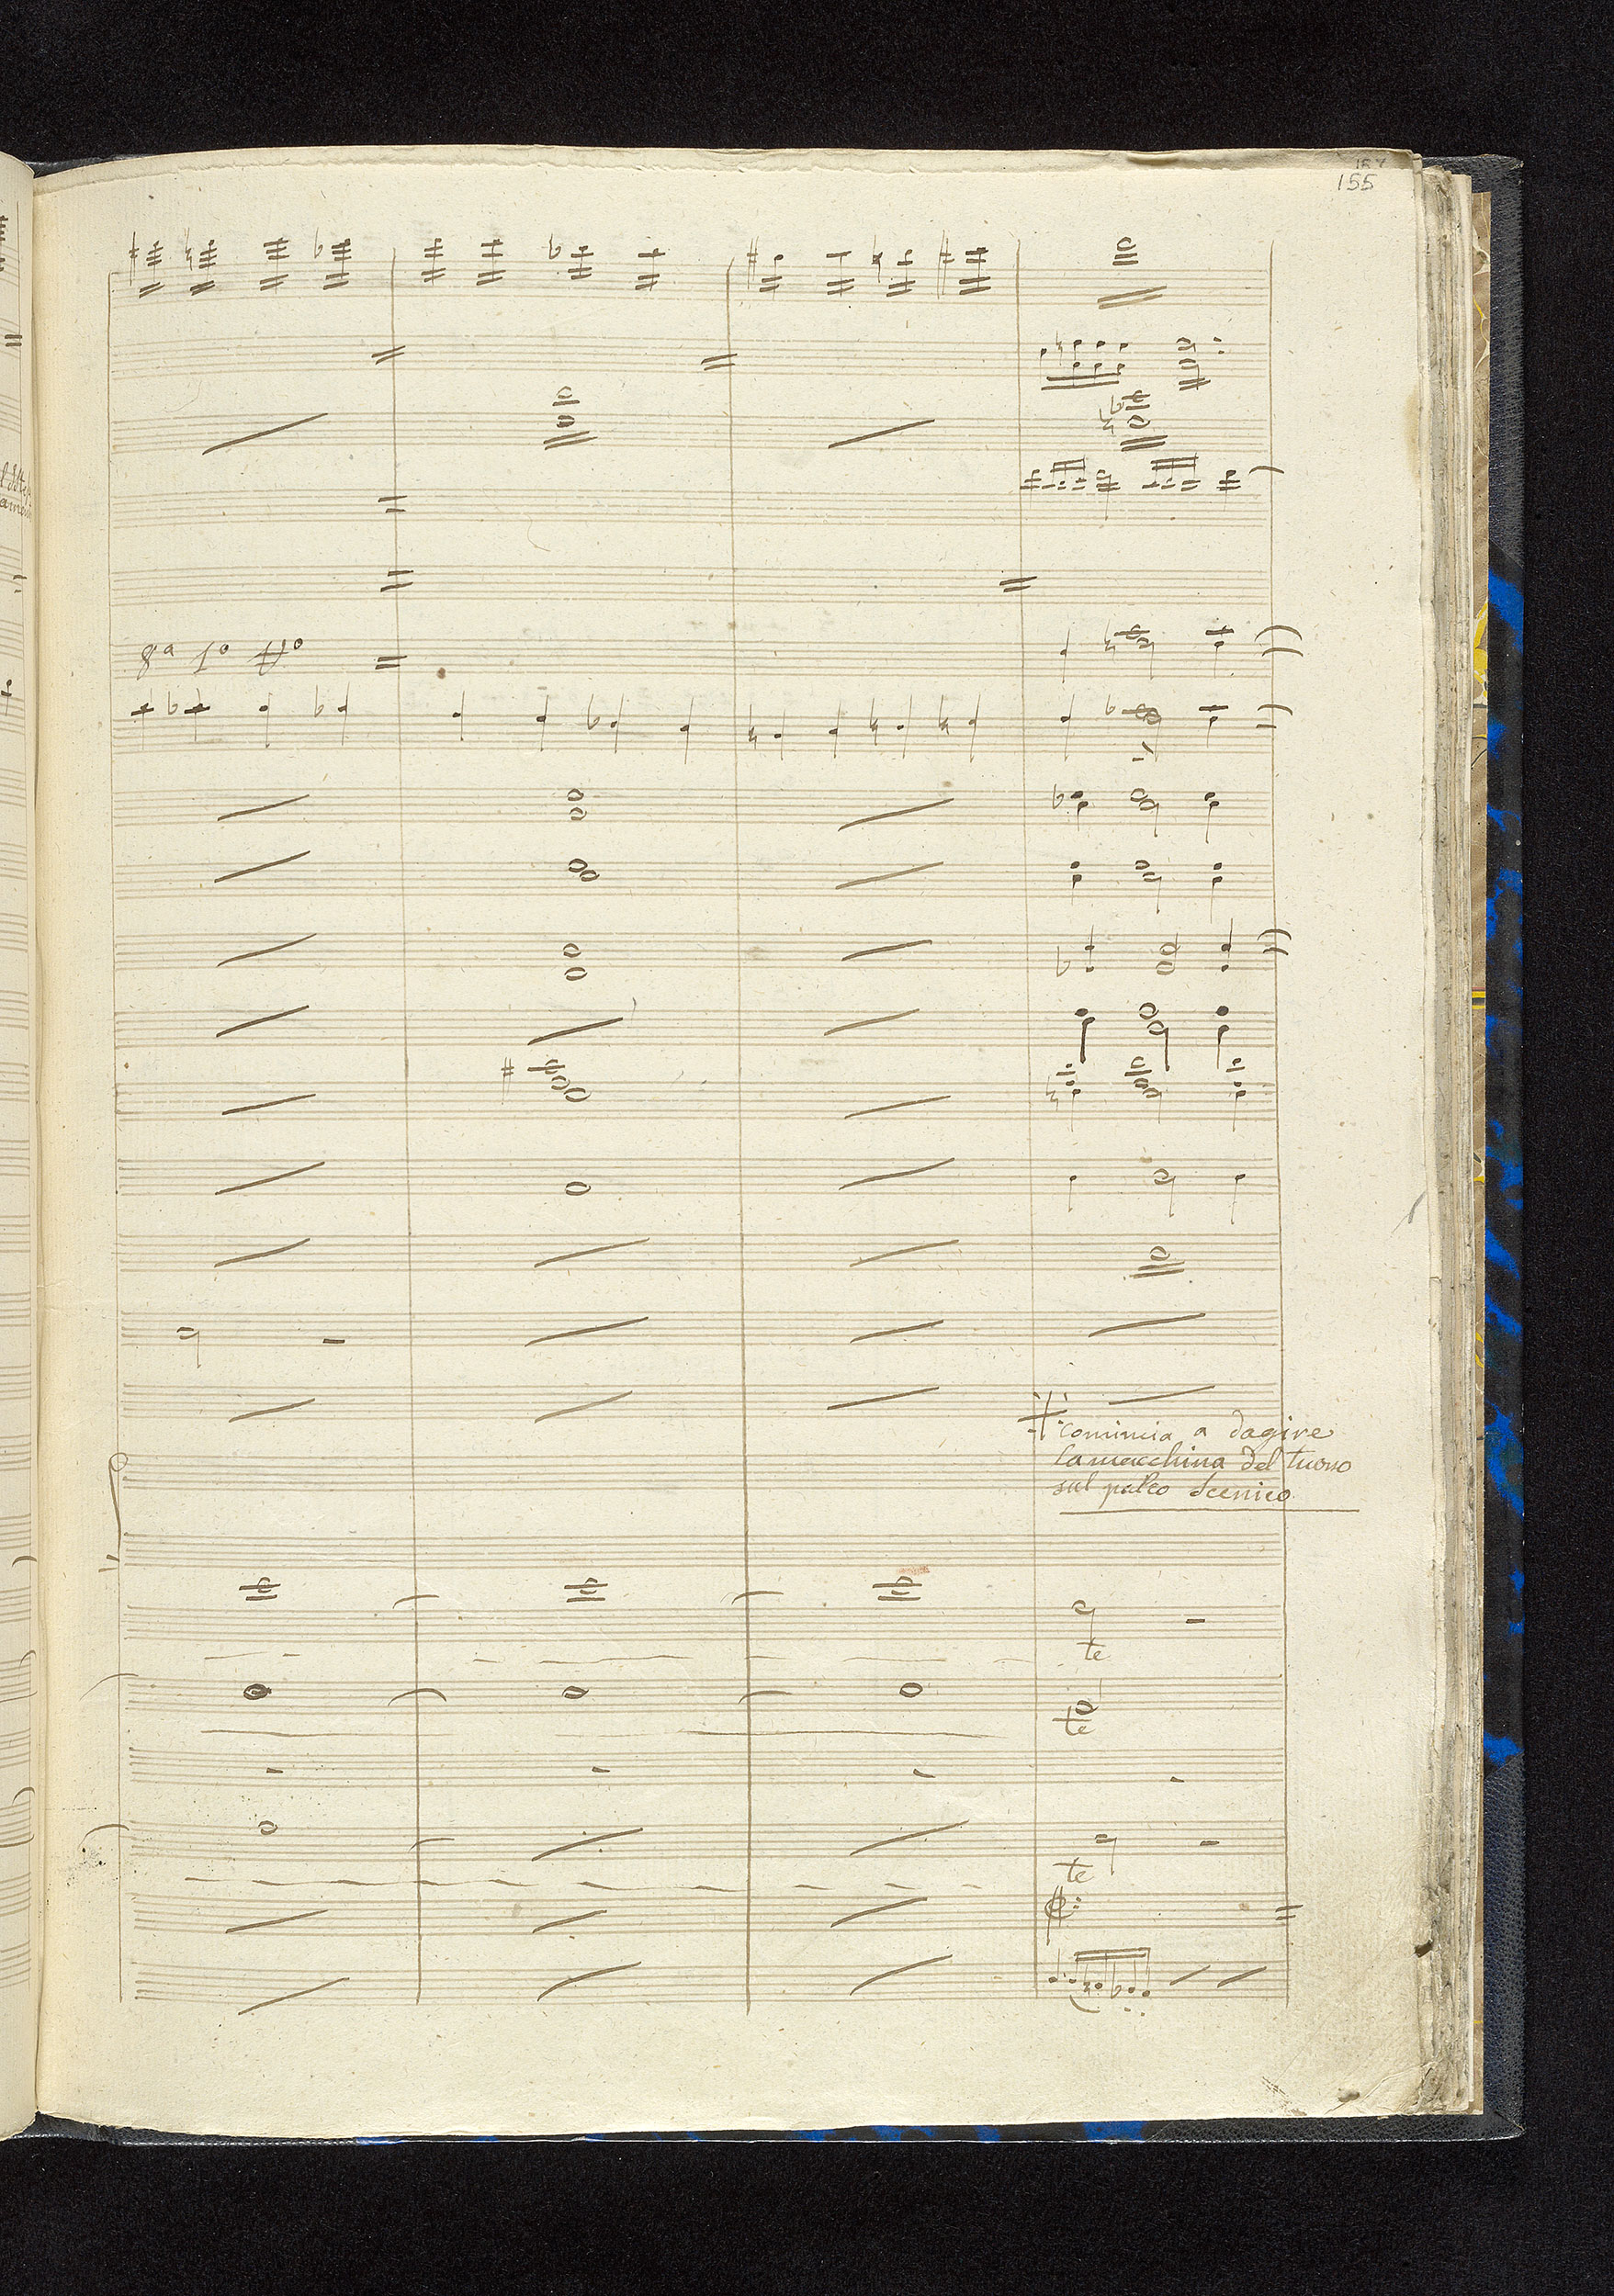 155
8ª 1º
comincia a dagire
la macchina del tuono
sul palco Scenico
te
te
te